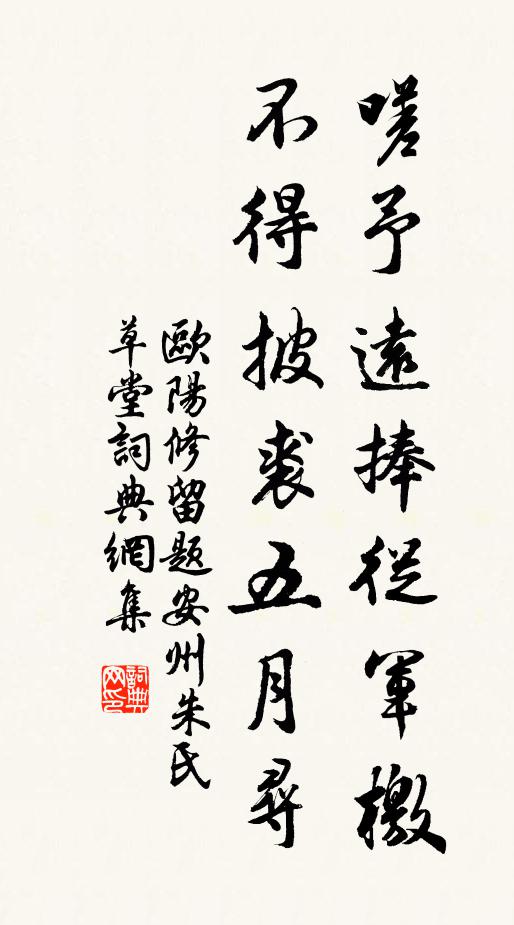 嗟予遠捧從軍檄
不得披裘五月尋
歐陽修留題安州朱氏
草堂詞典網集
詞典
网印